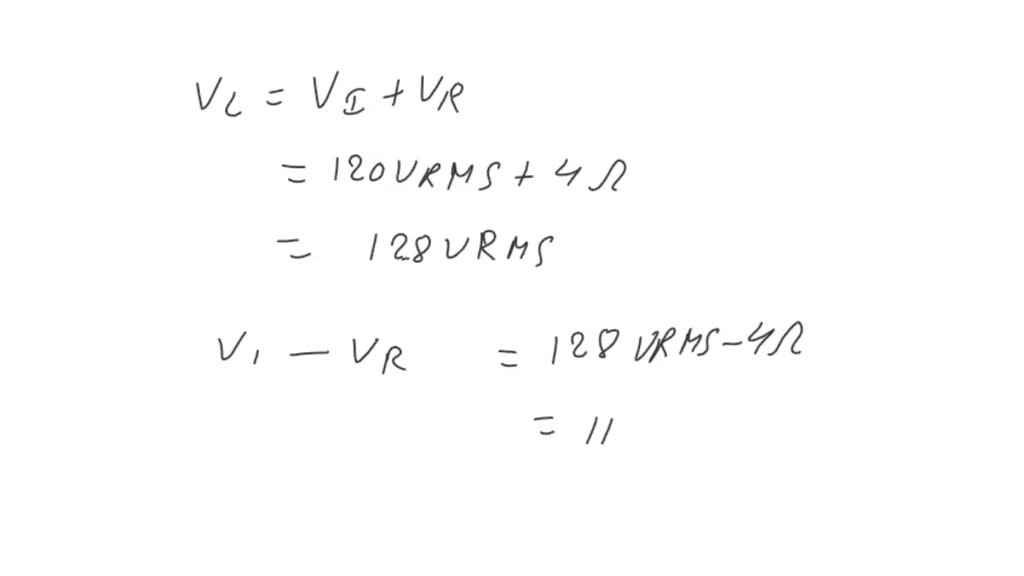 VL = VI + VR
= 120 VRMS + 4Ω
= 128 VRMS
V1 — VR = 128 VRMS - 4Ω
= 11